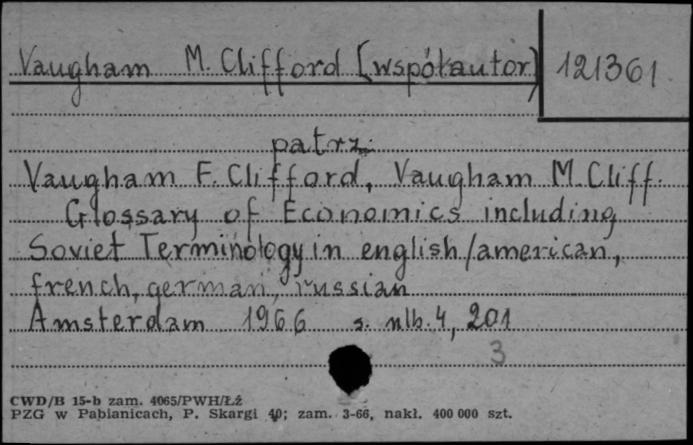 Vaugham M. Clifford [współautor] 121361
patrz
Vaugham F. Clifford, Vaugham M. Cliff.
Glossary of Economics including
Soviet Terminology in english/american,
french, german, russian
Amsterdam 1966 s. nlb. 4, 201
3
CWD/B 15-b zam. 4065/PWH/Łź
PZG w Pabianicach, P. Skargi 40; zam. 3-66, nakł. 400 000 szt.